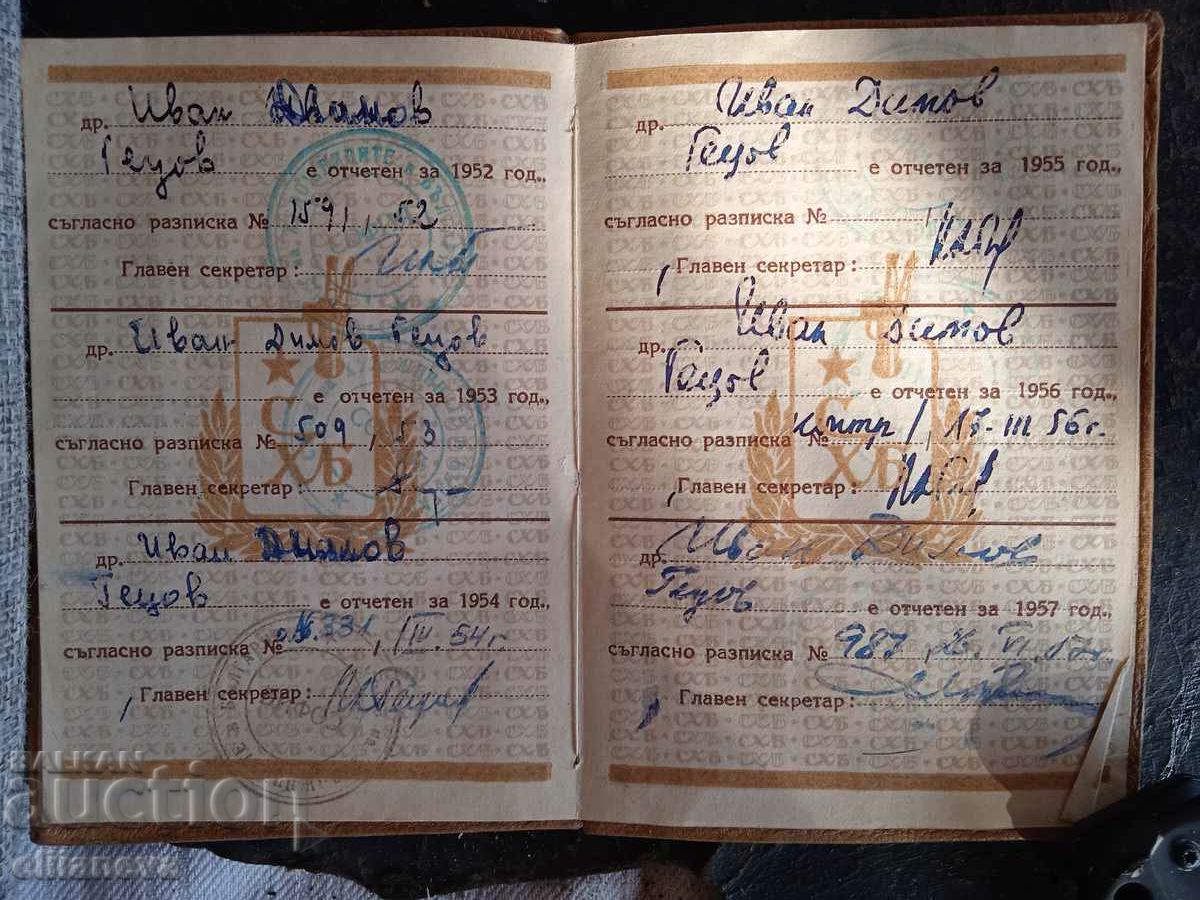 др. Иван Димов
Гецов е отчетен за 1952 год.,
съгласно разписка № 1591, 52
Главен секретар:
др. Иван Димов Гецов
е отчетен за 1953 год.,
съгласно разписка № 509 / 53
Главен секретар:
С
ХБ
др. Иван Димов
Гецов е отчетен за 1954 год.,
съгласно разписка № 331, III. 54 г.
Главен секретар:
др. Иван Димов
Гецов е отчетен за 1955 год.,
съгласно разписка №
Главен секретар:
др. Иван Димов
Гецов е отчетен за 1956 год.,
съгласно разписка № 15. III 56 г.
Главен секретар:
С
ХБ
др. Иван Димов
Гецов е отчетен за 1957 год.,
съгласно разписка № 987, 26. VI. 57 г.
Главен секретар:
БАЛКАН
auction
elianeva